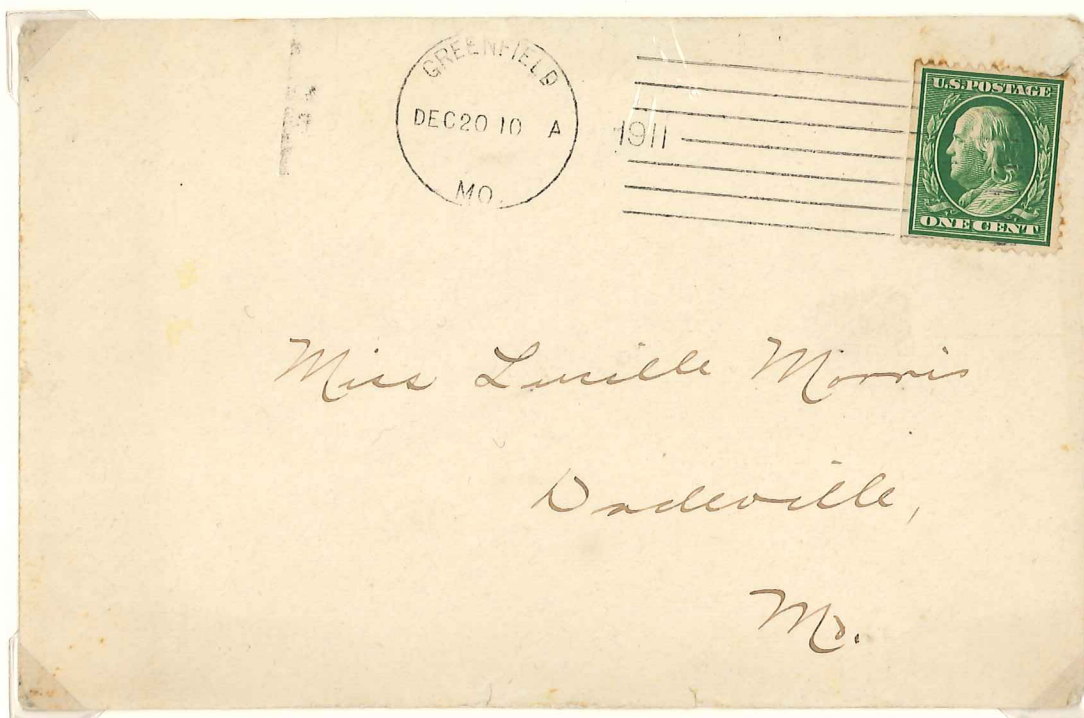 GREENFIELD
DEC 20 10 A
MO.
1911
U.S. POSTAGE
ONE CENT
Miss Lucille Morris
Dadeville,
Mo.